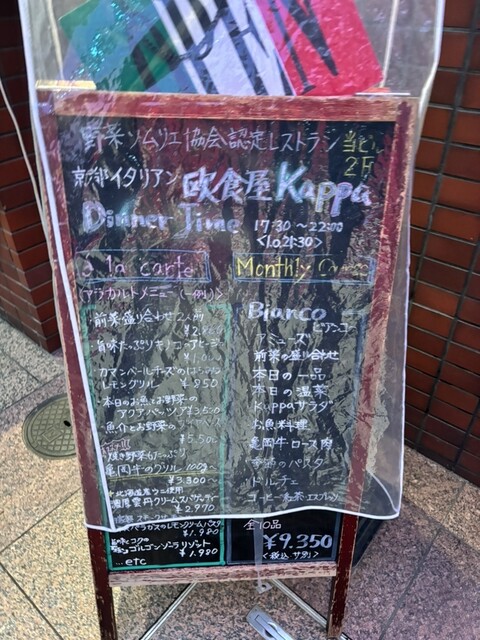 野菜ソムリエ協会認定レストラン 当ビル2F
京都イタリアン 欧食屋 Kappa
Dinner Time 17:30〜22:00
<L.o.21:30>
a la carte
(アラカルトメニュー(一例))
前菜盛り合わせ 2人前
旨味たっぷりキノコのアヒージョ
カマンベールチーズの
レモングリル ¥850
本日のお魚とお野菜の
アクアパッツァ ¥3,500
魚介とお野菜の
¥5,500
焼き野菜もたっぷり
亀岡牛のグリル 100g
¥3,300
北海道産ウニ使用
濃厚雲丹クリームスパゲティー
¥2,970
アスパラガスのレモンクリームパスタ
¥1,980
旨味とコクの
ゴルゴンゾーラリゾット
¥1,980
...etc
Monthly
Bianco
ビアンコ
アミューズ
前菜の盛り合わせ
本日の一品
本日の温菜
Kappaサラダ
お魚料理
亀岡牛ロース肉
季節のパスタ
ドルチェ
コーヒー 紅茶 エスプレッソ
全10品
¥9,350
<税込 サ別>